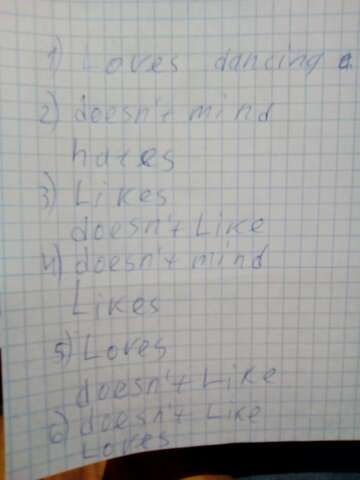 1) Loves dancing a
2) doesn't mind
hates
3) Likes
doesn't Like
4) doesn't mind
Likes
5) Loves
doesn't Like
6) doesn't Like
Loves